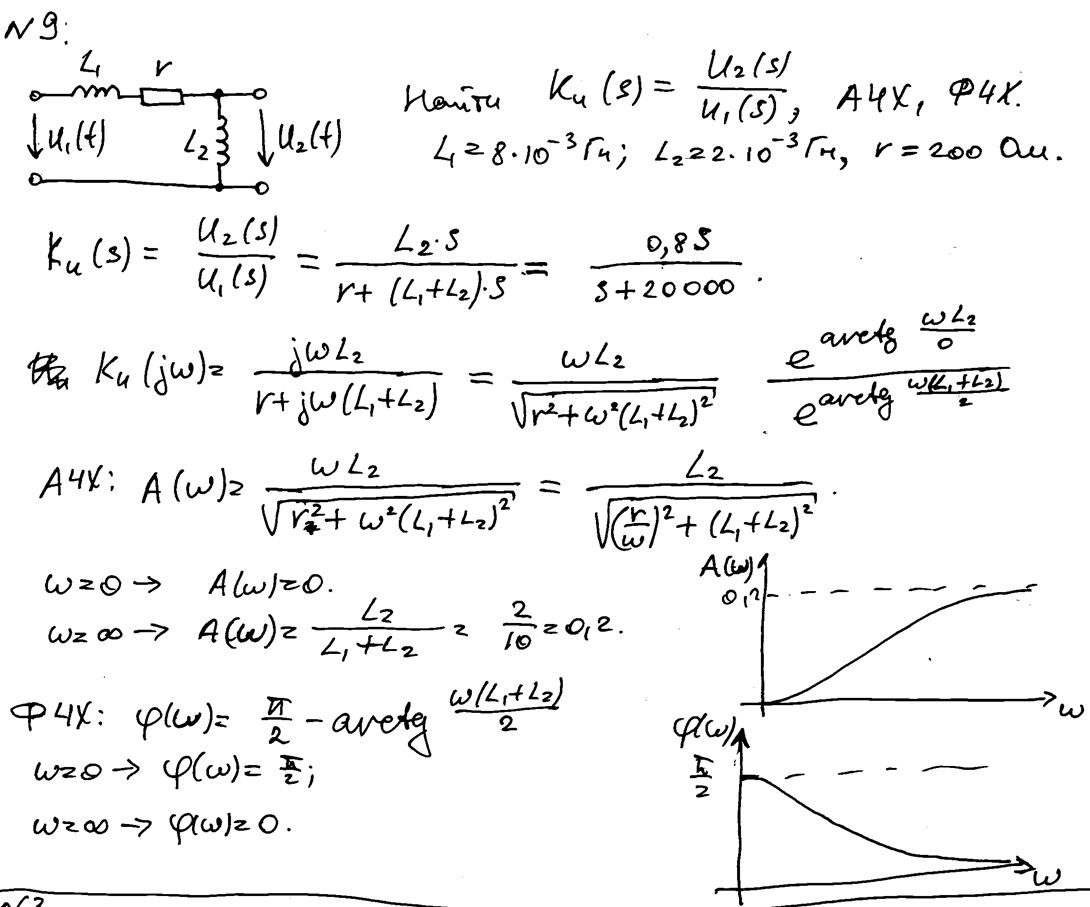 № 9:
L₁ r
u₁(t) L₂ u₂(t)
Найти Kᵤ(s) = U₂(s)/U₁(s), АЧХ, ФЧХ.
L₁ = 8·10⁻³ Гн; L₂ = 2·10⁻³ Гн, r = 200 Ом.
Kᵤ(s) = U₂(s)/U₁(s) = L₂·s/(r + (L₁+L₂)·s) = 0,8s/(s + 20000).
Kᵤ(jω) = jωL₂/(r + jω(L₁+L₂)) = ωL₂/√(r² + ω²(L₁+L₂)²) e^(arctg ωL₂/0)/e^(arctg ω(L₁+L₂)/2)
АЧХ: A(ω) = ωL₂/√(r² + ω²(L₁+L₂)²) = L₂/√((r/ω)² + (L₁+L₂)²).
ω=0 → A(ω)=0.
ω=∞ → A(ω) = L₂/(L₁+L₂) = 2/10 = 0,2.
A(ω)
0,2
ω
ФЧХ: φ(ω) = π/2 - arctg ω(L₁+L₂)/2
ω=0 → φ(ω) = π/2;
ω=∞ → φ(ω) = 0.
φ(ω)
π/2
ω